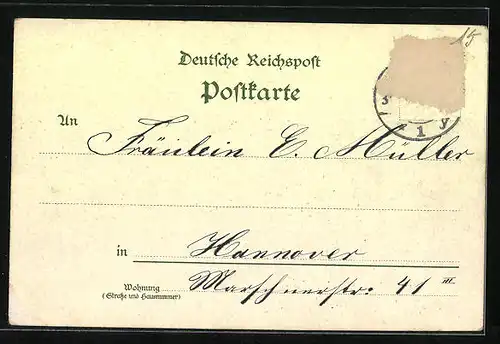 15
Deutsche Reichspost
Postkarte
An Fräulein E. Müller
in Hannover
Wohnung Marschnerstr: 41 III.
(Straße und Hausnummer)
* 1 y